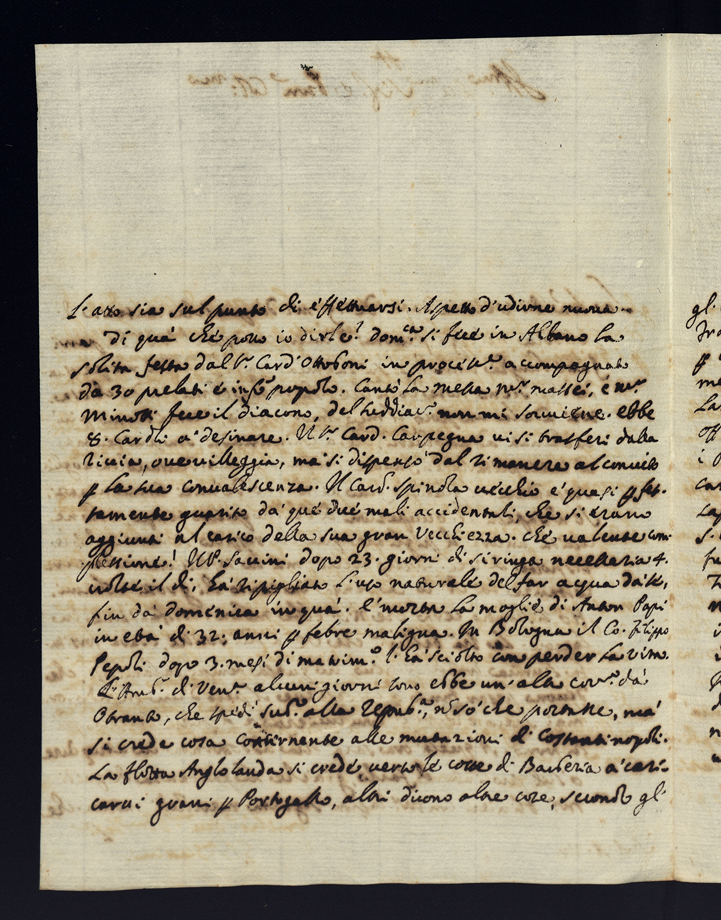 l'atto sia sul punto di effettuarsi. Aspetto d'udirne nuova.
Di quà che posso io dirle? Dom.ca si fece in Albano la
solita festa dal S.r Card. Ottoboni in process.e accompagnato
da 30 prelati e inf.o popolo. Cantò la messa m.r mattei, e m.r
Minotti fece il diacono, del suddiac.o non mi souuiene. ebbe
8. Card.li à desinare. Il S.r Card. Carpegna ui si trasferì dalla
Riccia, oue uilleggia, mà si dispensò dal rimanere al conuito
p la sua conualescenza. Il Card. Spinola uecchio è quasi pfet-
tamente guarito da que' due mali accidentali, che si erano
aggiunti al carico della sua gran Vecchiezza. che ualente com
plessione! Il P. Sauini dopo 23. giorni di siringa necessaria 4.
uolte il dì, hà ripigliato l'uso naturale del far acqua da se,
fin da domenica in quà. è morta la moglie di Anton Papi
in età di 32. anni p febre maligna. In Bologna il Co. Filippo
Pepoli dopo 3. mesi di matrim.o l'hà sciolto con perder la uita.
L'Amb.r di Ven.a alcuni giorni sono ebbe un'altro cor.e da
Otranto, che spedì sub.o alla Repub.a, nō sò che portasse, mà
si crede cosa concernente alle mutazioni di Costantinopoli.
La flotta Anglolanda si crede uerso le coste di Barberia à cari-
carui grani p Portogallo, altri dicono altre cose, secondo gl'
gl'
p
La
i